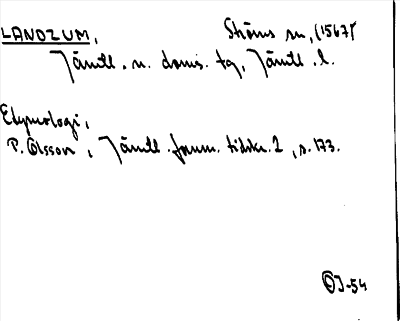 LANDZUM, Ströms sn, (1567)
Jämtl. n. doms. tg, Jämtl. l.
Etymologi,
P. Olsson, Jämtl. forum. tidskr. 2, s. 173.
OJ-54